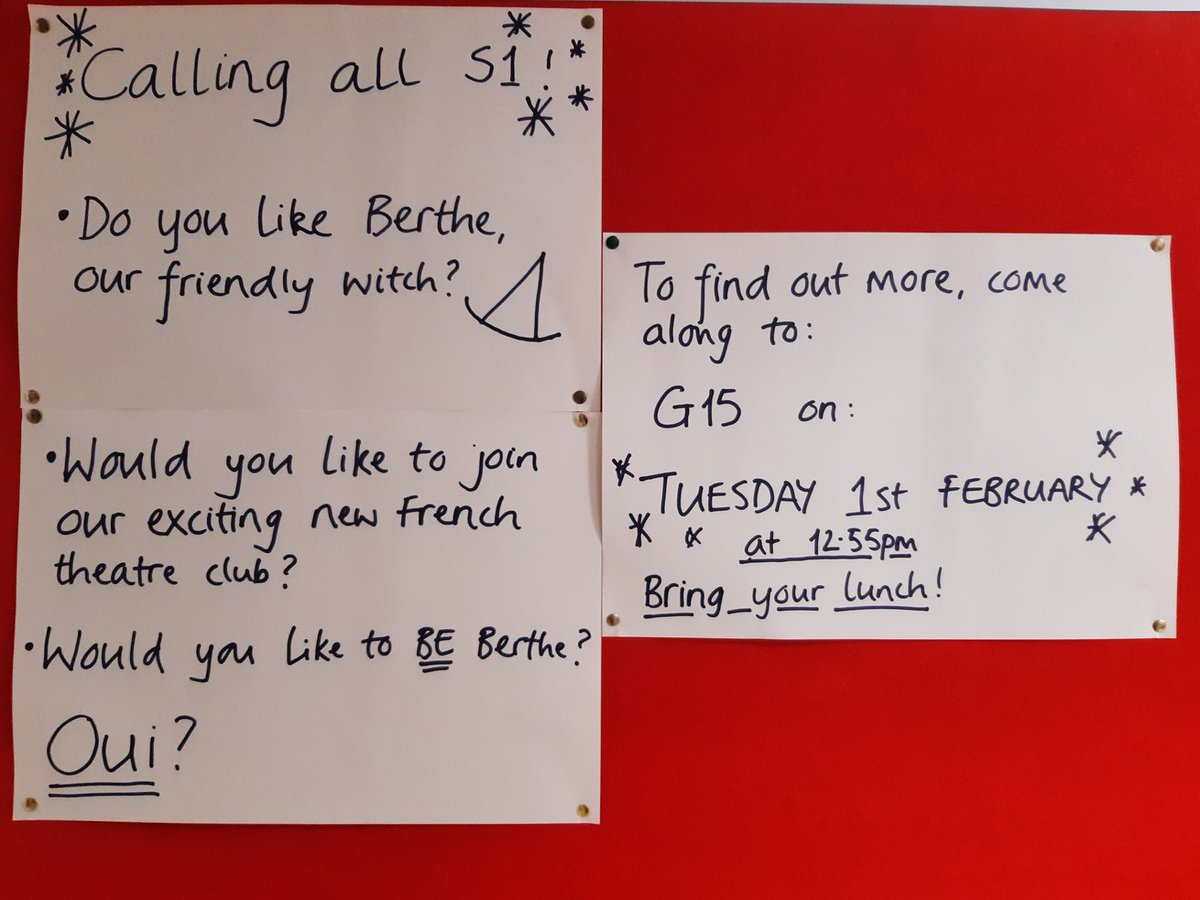 Calling all S1!
• Do you like Berthe,
our friendly witch?
• Would you like to join
our exciting new French
theatre club?
• Would you like to BE Berthe?
Oui?
To find out more, come
along to:
G15 on:
TUESDAY 1st FEBRUARY
at 12.55pm
Bring your lunch!